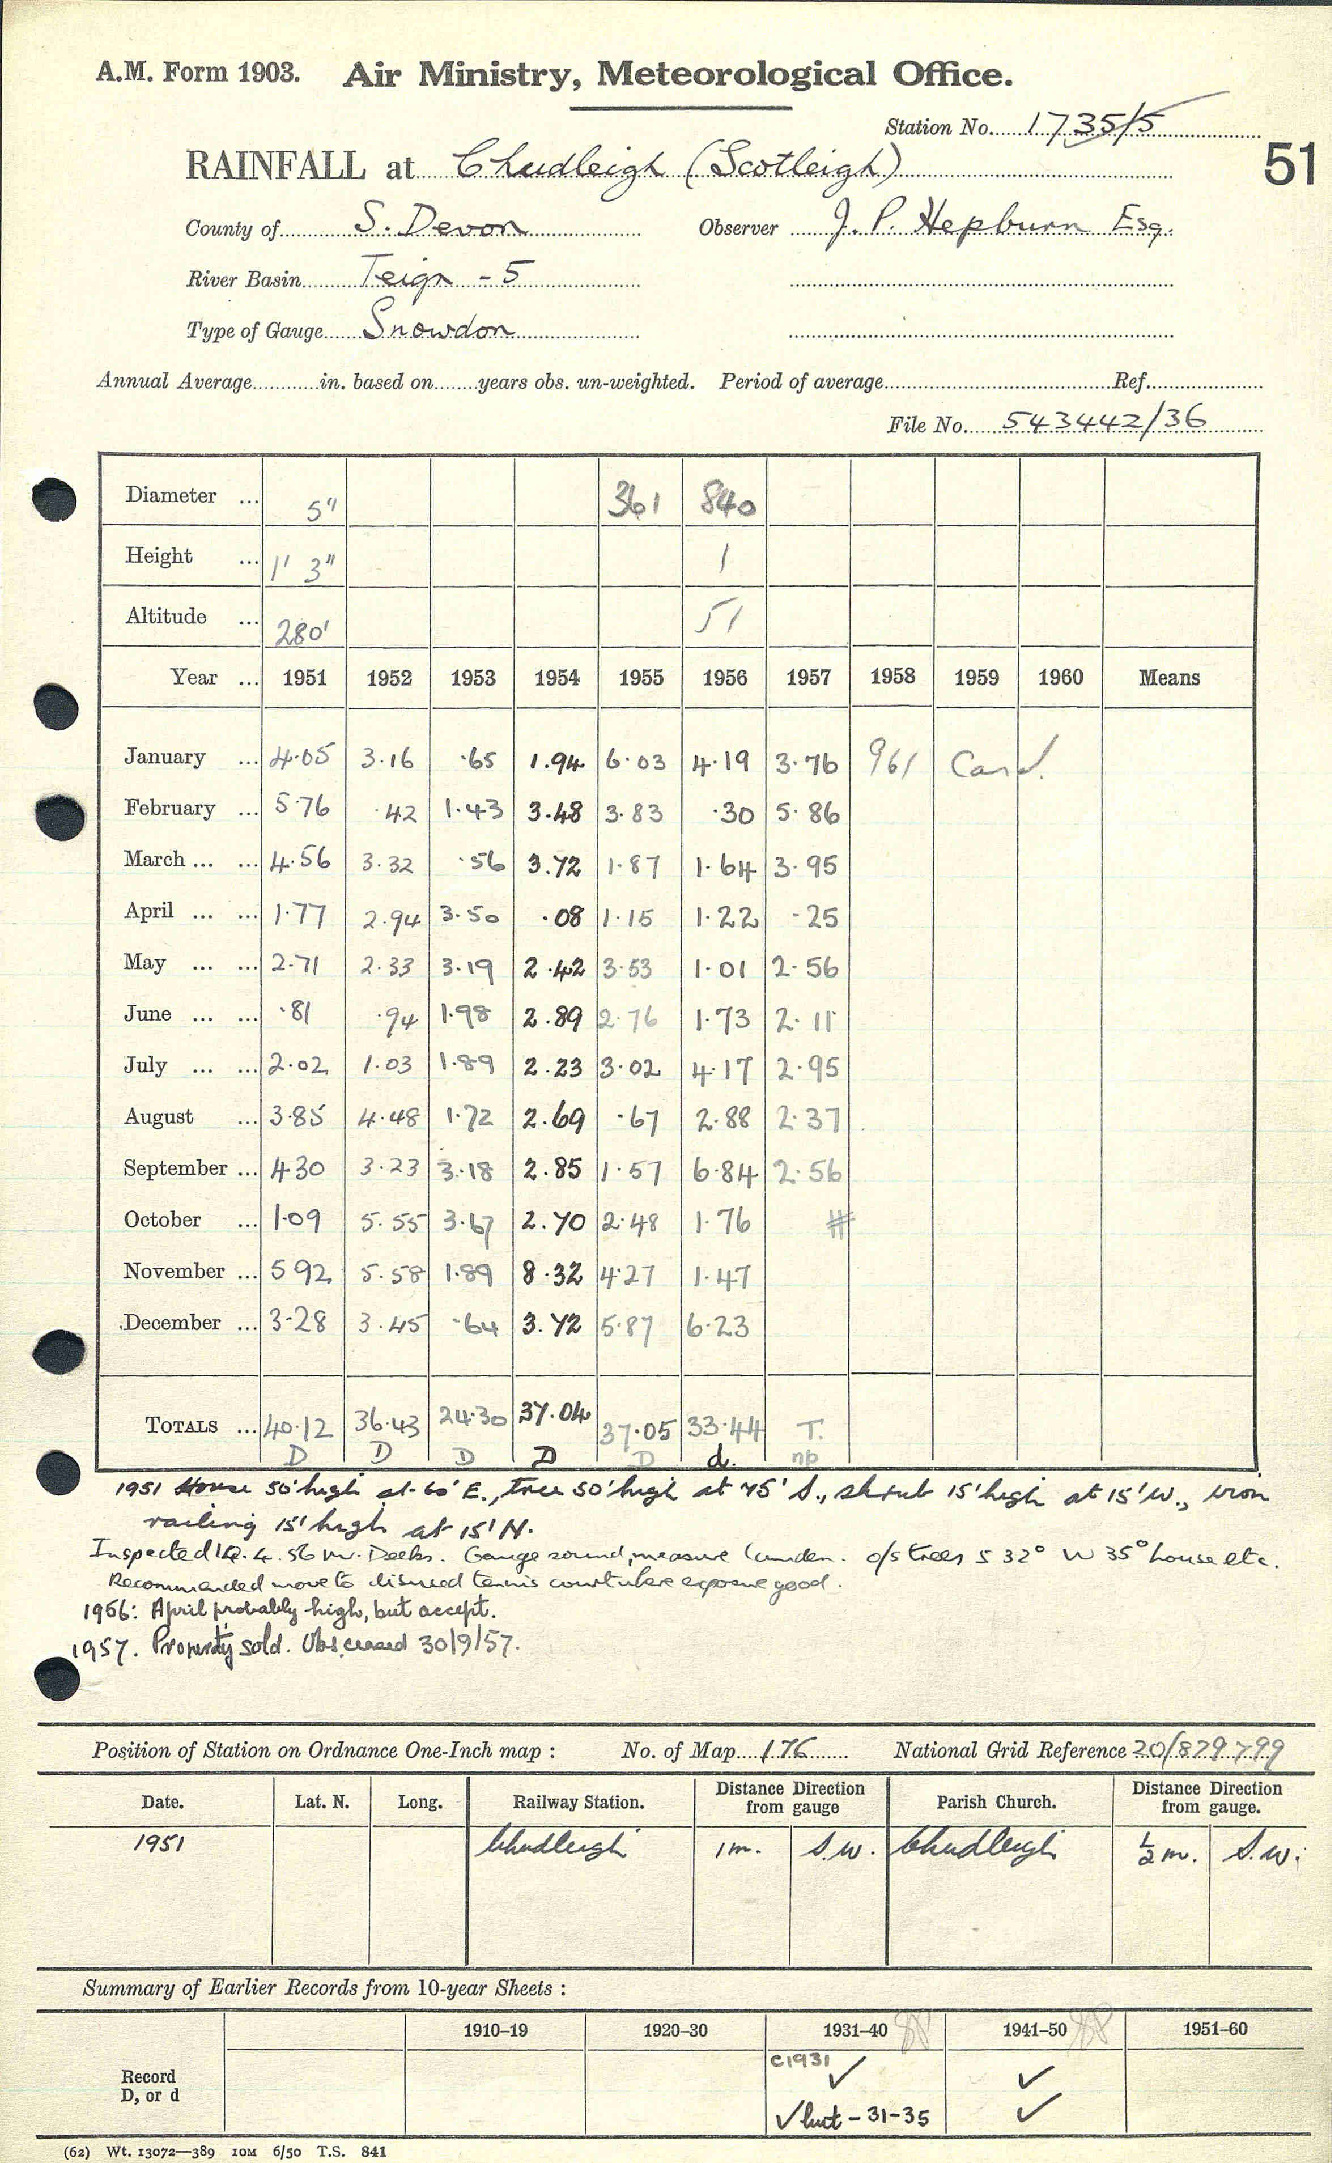 A.M. Form 1903. Air Ministry, Meteorological Office.
Station No. 1735/5
51
RAINFALL at Chudleigh (Scotleigh)
County of S. Devon Observer J. P. Hepburn Esq.
River Basin Teign - 5
Type of Gauge Snowdon
Annual Average in. based on years obs. un-weighted. Period of average Ref.
File No. 543442/36
Diameter ... 5" 361 840
Height ... 1' 3" 1
Altitude ... 280' 51
Year ... 1951 1952 1953 1954 1955 1956 1957 1958 1959 1960 Means
January ... 4.05 3.16 .65 1.94 6.03 4.19 3.76 961 Card.
February ... 5.76 .42 1.43 3.48 3.83 .30 5.86
March ... ... 4.56 3.32 .56 3.72 1.87 1.64 3.95
April ... ... 1.77 2.94 3.50 .08 1.15 1.22 .25
May ... ... 2.71 2.33 3.19 2.42 3.53 1.01 2.56
June ... ... .81 .94 1.98 2.89 2.76 1.73 2.11
July ... ... 2.02 1.03 1.89 2.23 3.02 4.17 2.95
August ... 3.85 4.48 1.72 2.69 .67 2.88 2.37
September ... 4.30 3.23 3.18 2.85 1.57 6.84 2.56
October ... 1.09 5.55 3.67 2.70 2.48 1.76 #
November ... 5.92 5.58 1.89 8.32 4.27 1.47
December ... 3.28 3.45 .64 3.72 5.87 6.23
TOTALS ... 40.12 36.43 24.30 37.04 37.05 33.44 T.
D D D D D d. np
1951 House 50' high at 60' E., tree 50' high at 75' S., shrub 15' high at 15' W., iron
railing 15' high at 15' N.
Inspected 4.56 W. Deeks. Gauge sound, measure Camden. o/s trees S 32° W 35° house etc.
Recommended move to disused tennis court where exposure good.
1956: April probably high, but accept.
1957. Property sold. Obs. ceased 30/9/57.
Position of Station on Ordnance One-Inch map : No. of Map 176 National Grid Reference 20/879799
Date. Lat. N. Long. Railway Station. Distance Direction from gauge Parish Church. Distance Direction from gauge.
1951 Chudleigh 1 m. S.W. Chudleigh ½ m. S.W.
Summary of Earlier Records from 10-year Sheets :
1910–19 1920–30 1931–40 1941–50 1951–60
Record
D, or d
C1931 ✓ ✓
✓ but - 31-35 ✓
(62) Wt. 13072—389 10M 6/50 T.S. 841